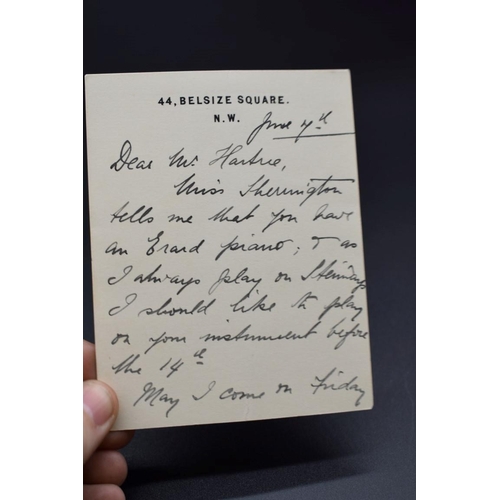 44, BELSIZE SQUARE.
N.W.
June 7th
Dear Mr. Hartree,
Miss Sherrington
tells me that you have
an Erard piano; & as
I always play on Steinways
I should like to play
on your instrument before
the 14th
May I come on Friday